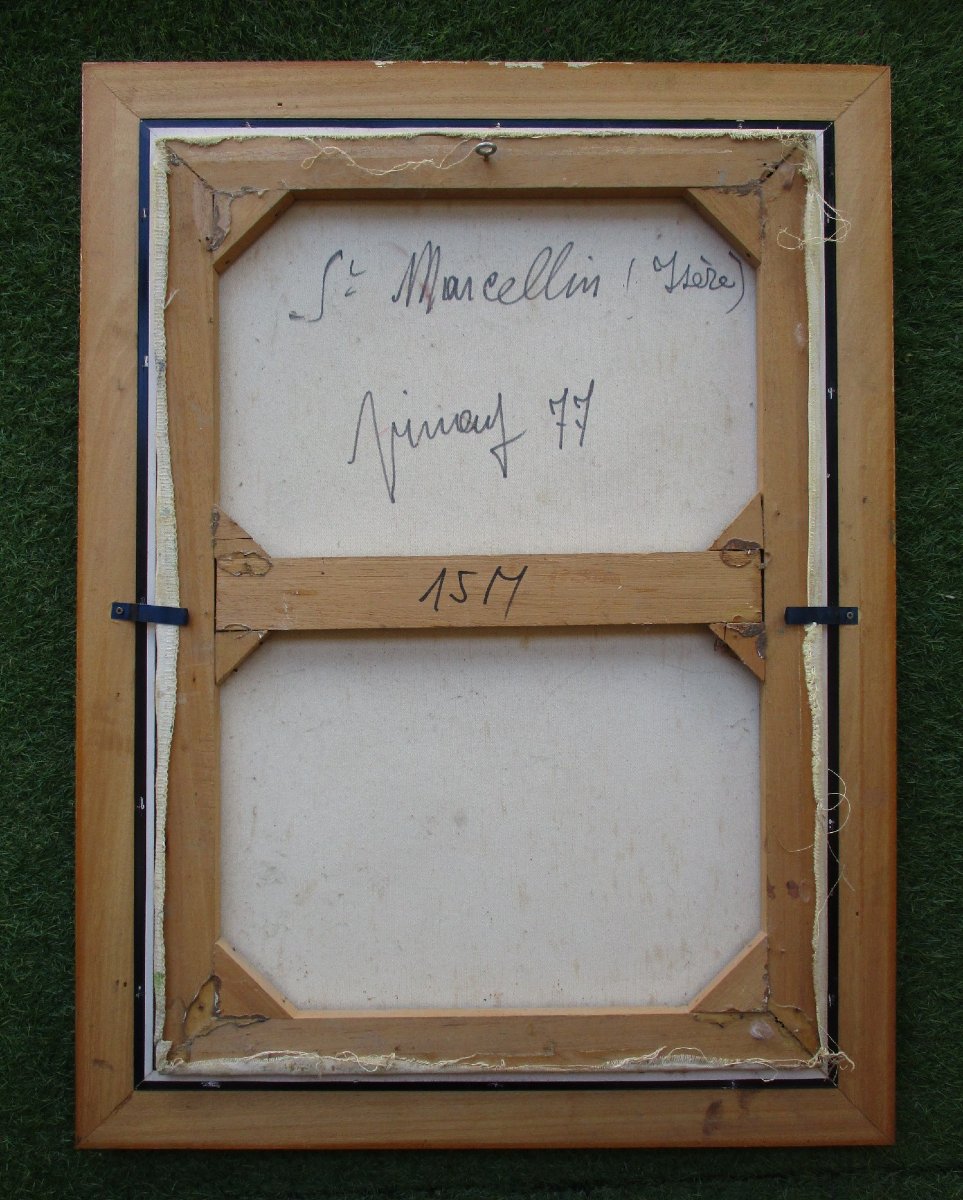 St Marcellin (Isère)
77
15M